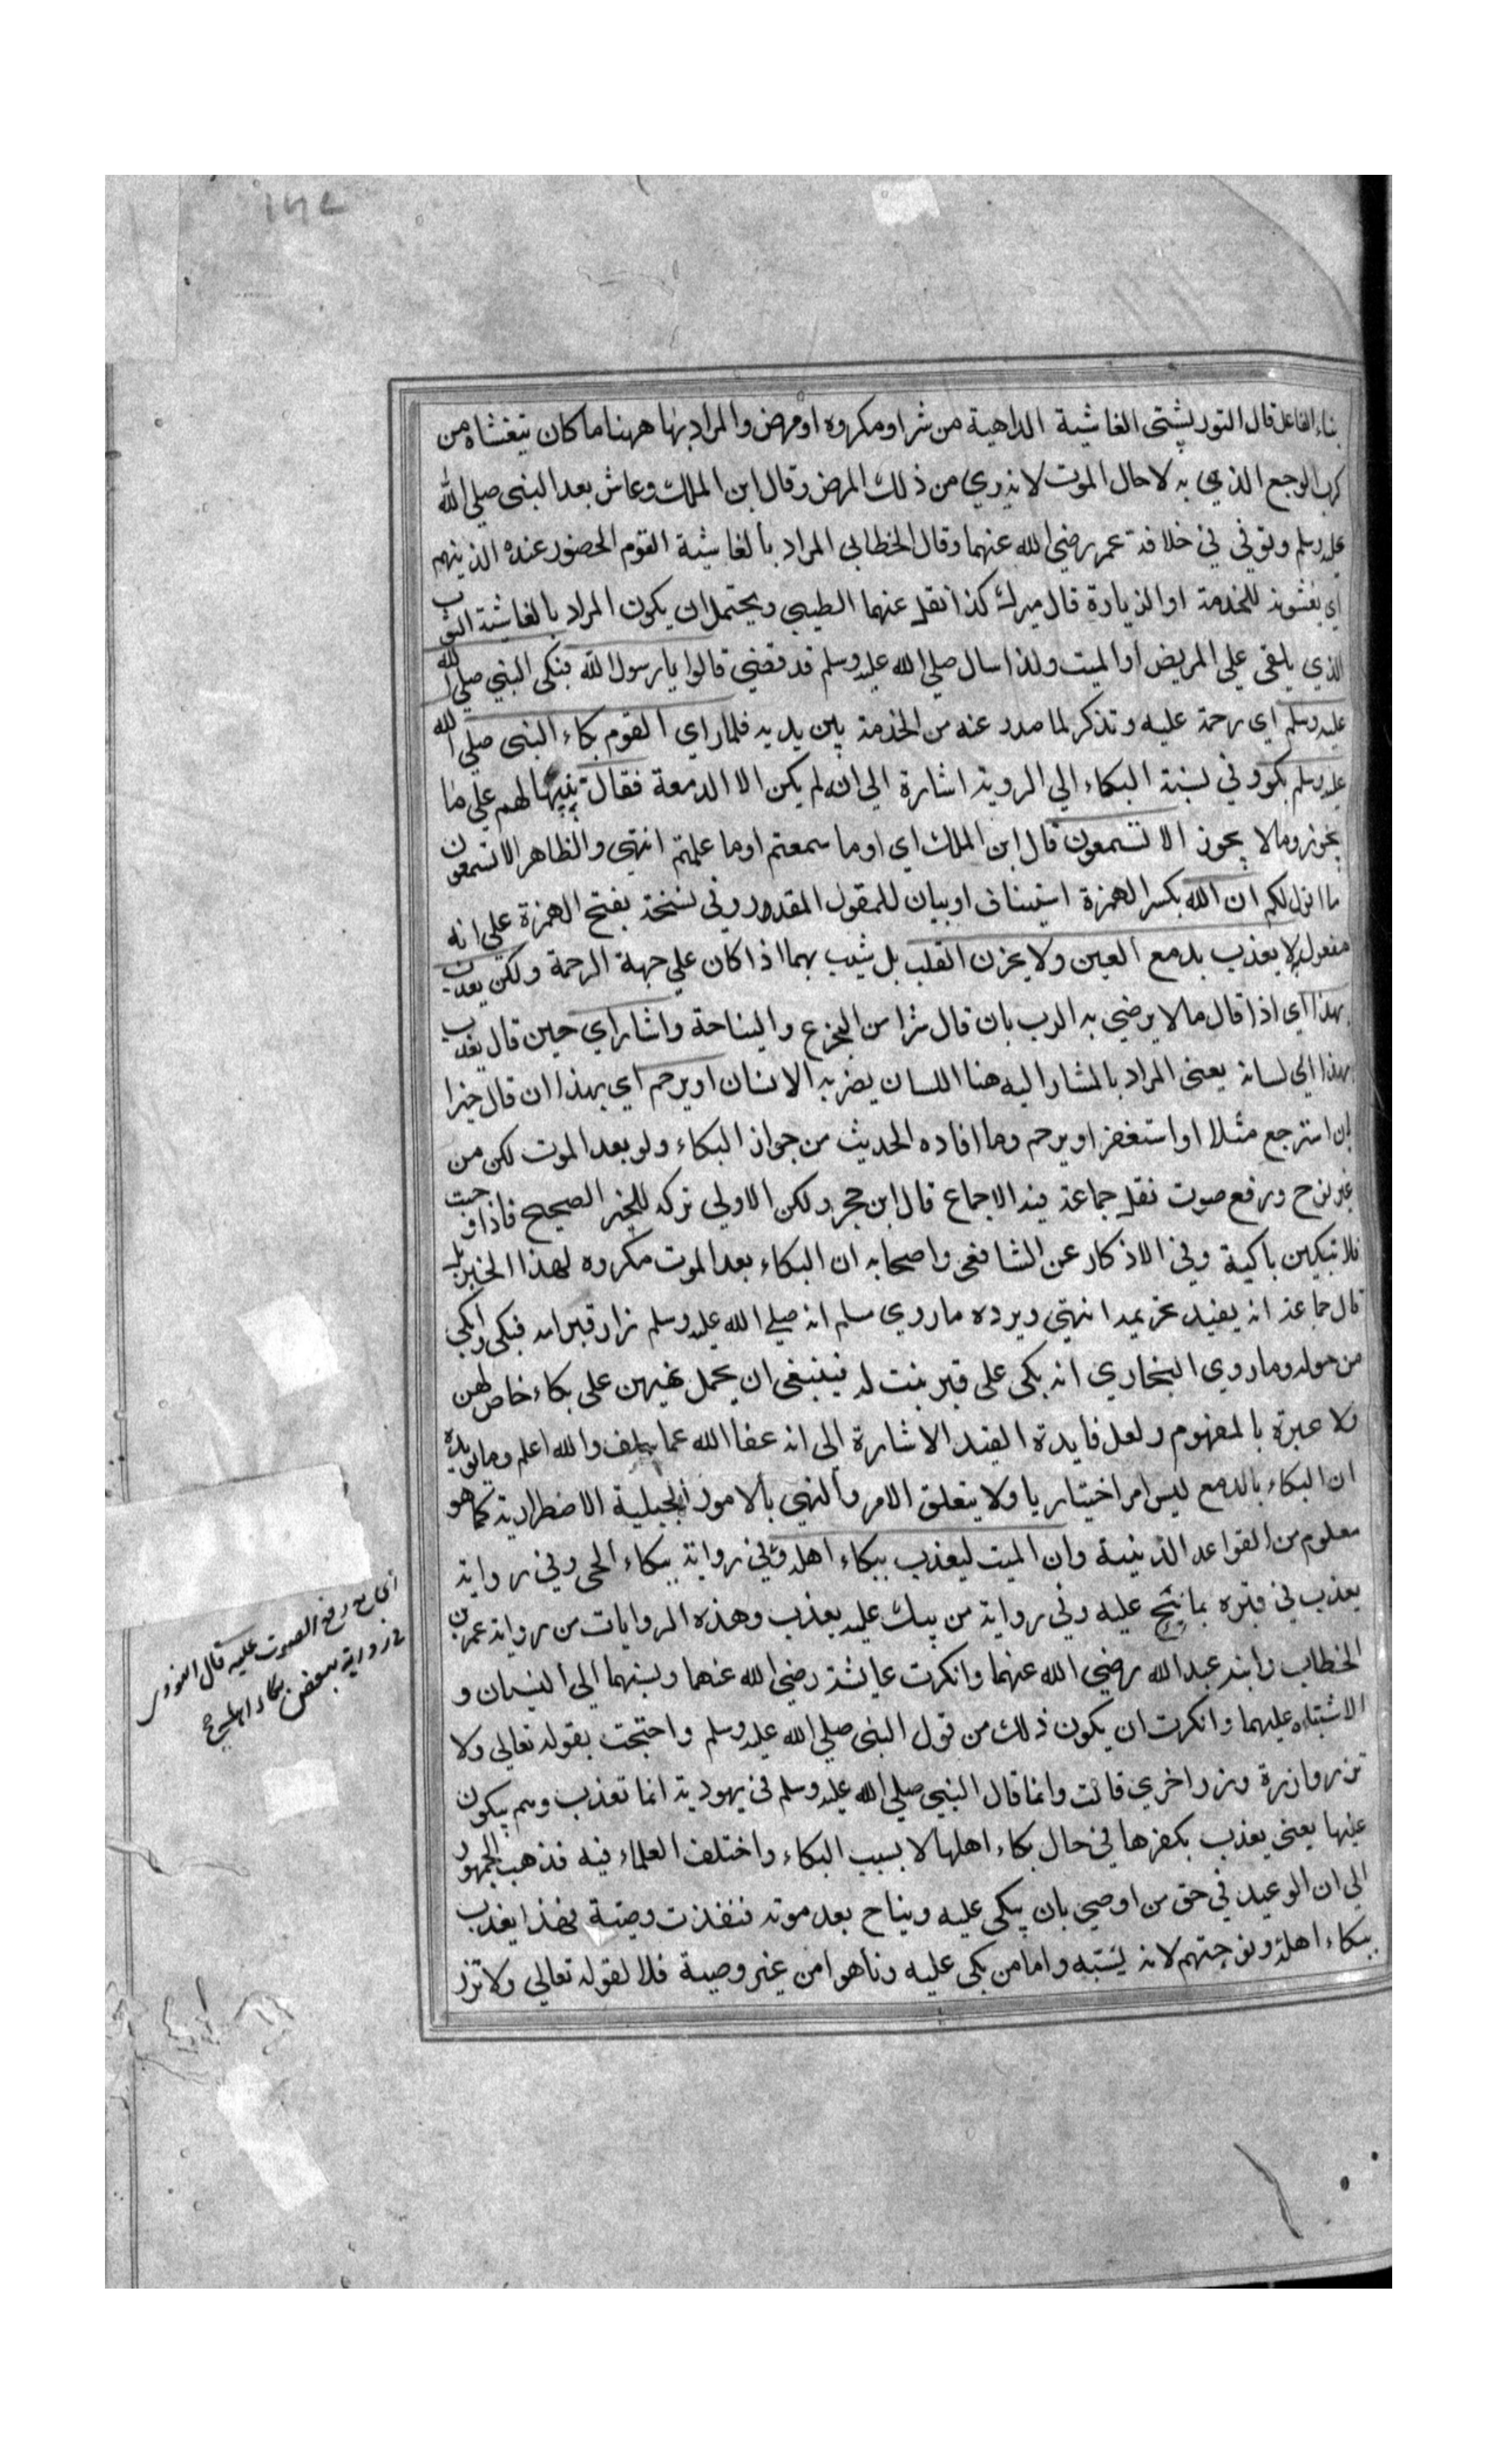 بناء الفاعل قال التوربشتي الغاشية الداهية من شر او مكروه او مرض والمراد بها ههنا ما كان يتغشاه من
كرب الوجع الذي به لا حال الموت لانه بري من ذلك المرض وقال ابن الملك وعاش بعد النبي صلي الله
عليه وسلم وتوفي في خلافة عمر رضي الله عنهما وقال الخطابي المراد بالغاشية القوم الحضور عنده الذينهم
اي يغشونه للخدمة او الزيارة قال ميرك كذا نقل عنهما الطيبي ويحتمل ان يكون المراد بالغاشية الثوب
الذي يلقي علي المريض او الميت ولذا سال صلي الله عليه وسلم قد قضي قالوا يا رسول الله فبكي النبي صلي الله
عليه وسلم اي رحمة عليه وتذكر لما صدر عنه من الخدمة بين يديه فلما راي القوم بكاء النبي صلي الله
عليه وسلم بكوا وفي نسبة البكاء الي الروية اشارة الي انه لم يكن الا الدمعة فقال تنبيها لهم علي ما
يجوز وما لا يجوز الا تسمعون قال ابن الملك اي او ما سمعتم او ما علمتم انتهي والظاهر الا تسمعون
ما اقول لكم ان الله بكسر الهمزة استيناف او بيان للمقول المقدر وفي نسخة بفتح الهمزة علي انه
مفعول لا يعذب بدمع العين ولا بحزن القلب بل يثيب بهما اذا كان علي جهة الرحمة ولكن يعذب
بهذا اي اذا قال ما لا يرضي به الرب بان قال شرا من الجزع والنياحة واشار اي حين قال يعذب
بهذا الي لسانه يعني المراد بالمشار اليه هنا اللسان يضر به الانسان او يرحم اي بهذا ان قال خيرا
بان استرجع مثلا او استغفر او يرحم وما افاده الحديث من جواز البكاء ولو بعد الموت لكن من
غير نوح ورفع صوت نقل جماعة فيه الاجماع قال ابن حجر ولكن الاولي تركه للخبر الصحيح فاذا وجبت
فلا تبكين باكية وفي الاذكار عن الشافعي واصحابه ان البكاء بعد الموت مكروه لهذا الخبر بل
قال جماعة انه يفيد تحريمه انتهي ويرده ما روي مسلم انه صلي الله عليه وسلم زار قبر امه فبكي وابكي
من حوله وما روي البخاري انه بكي على قبر بنت له فينبغي ان يحمل نهيهن على بكاء خاص لهن
ولا عبرة بالمفهوم ولعل فايدة القيد الاشارة الي انه عفا الله عما سلف والله اعلم ومما يؤيده
ان البكاء بالدمع ليس امرا اختياريا ولا يتعلق الامر والنهي بالامور الجبلية الاضطرارية كما هو
معلوم من القواعد الدينية وان الميت ليعذب ببكاء اهله وفي رواية ببكاء الحي وفي رواية
يعذب في قبره بما نيح عليه وفي رواية من يبك عليه يعذب وهذه الروايات من رواية عمر بن
الخطاب وابنه عبد الله رضي الله عنهما وانكرت عايشة رضي الله عنها ونسبتهما الي النسيان و
الاشتباه عليهما وانكرت ان يكون ذلك من قول النبي صلي الله عليه وسلم واحتجت بقوله تعالي ولا
تزر وازرة وزر اخري قالت وانما قال النبي صلي الله عليه وسلم في يهودية انما تعذب وهم يبكون
عليها يعني يعذب بكفرها في حال بكاء اهلها لا بسبب البكاء واختلف العلماء فيه فذهب الجمهور
الي ان الوعيد في حق من اوصي بان يبكي عليه ويناح بعد موته فنفذت وصيته فهذا يعذب
ببكاء اهله ونوحهم لانه بسببه واما من بكي عليه وناحوا من غير وصية فلا لقوله تعالي ولا تزر
رفع الصوت عليه قال النووي
في رواية ببعض بكاء اهله